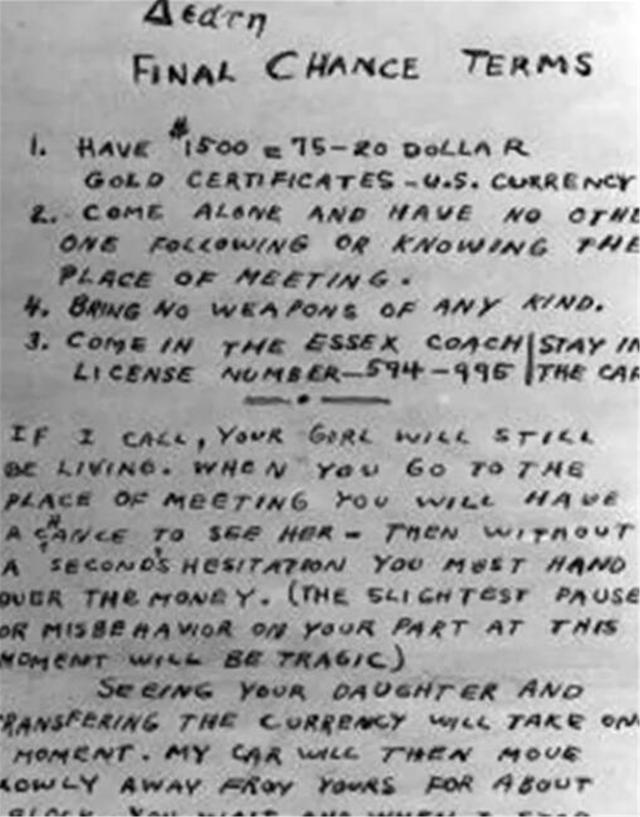 Δεατη
FINAL CHANCE TERMS
1. HAVE $1500 = 75-20 DOLLAR
GOLD CERTIFICATES - U.S. CURRENCY
2. COME ALONE AND HAVE NO OTHE
ONE FOLLOWING OR KNOWING THE
PLACE OF MEETING.
4. BRING NO WEAPONS OF ANY KIND.
3. COME IN THE ESSEX COACH | STAY IN
LICENSE NUMBER-594-995 | THE CAR
IF I CALL, YOUR GIRL WILL STILL
BE LIVING. WHEN YOU GO TO THE
PLACE OF MEETING YOU WILL HAVE
A CHANCE TO SEE HER - THEN WITHOUT
A SECOND'S HESITATION YOU MUST HAND
OVER THE MONEY. (THE SLIGHTEST PAUSE
OR MISBEHAVIOR ON YOUR PART AT THIS
MOMENT WILL BE TRAGIC)
SEEING YOUR DAUGHTER AND
RANSFERING THE CURRENCY WILL TAKE ON
MOMENT. MY CAR WILL THEN MOVE
LOWLY AWAY FROM YOURS FOR ABOUT
BLOCK. YOU WAIT AND WHEN I STOP